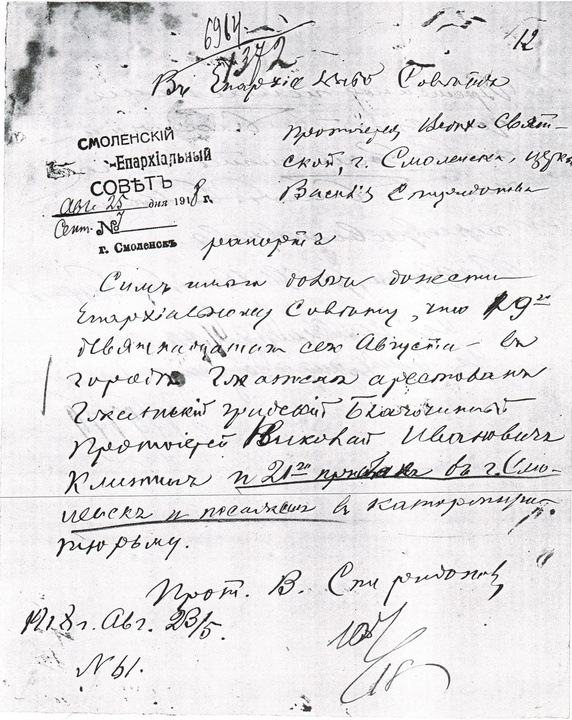 6914
1372
12
Въ Епархіальный Совѣтъ
СМОЛЕНСКІЙ
-Епархіальный
СОВѢТЪ
Авг. 25 дня 1918 г.
Сент. № 7
г. Смоленскъ
Протоіерея Верхо-Свят-
ской, г. Смоленска, церкви
Василія Спиридонова
рапортъ
Симъ имѣю донести
Епархіальному Совѣту, что 19го
девятнадцатаго сего Августа въ
городѣ Гжатскѣ арестованъ
Гжатскій градскій Благочинный
Протоіерей Николай Ивановичъ
Клитинъ и 21го привезенъ въ г. Смо-
ленскъ и посаженъ въ каторжную
тюрьму.
Прот. В. Спиридоновъ
1918 г. Авг. 23/5.
№ 61.